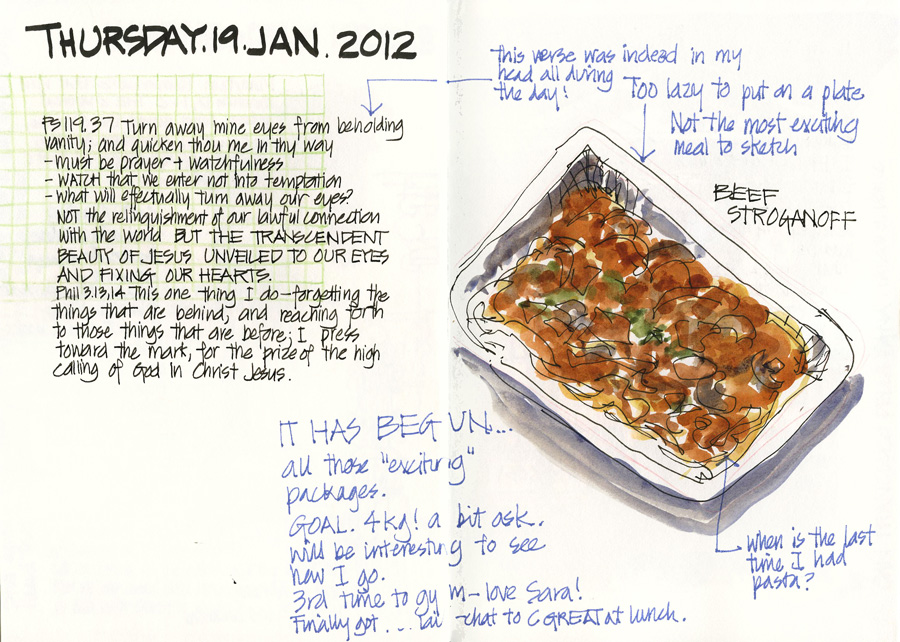 THURSDAY.19.JAN.2012
PS 119.37 Turn away mine eyes from beholding
vanity; and quicken thou me in thy way
- must be prayer + watchfulness
- WATCH that we enter not into temptation
- what will effectually turn away our eyes?
NOT the relinquishment of our lawful connection
with the world BUT THE TRANSCENDENT
BEAUTY OF JESUS UNVEILED TO OUR EYES
AND FIXING OUR HEARTS.
Phil 3.13,14 This one thing I do - forgetting the
things that are behind, and reaching forth
to those things that are before; I press
toward the mark, for the prize of the high
calling of God in Christ Jesus.
this verse was indeed in my
head all during
the day!
Too lazy to put on a plate
Not the most exciting
meal to sketch
BEEF
STROGANOFF
IT HAS BEGUN...
all those "exciting"
packages.
GOAL. 4kg! a bit ask.
will be interesting to see
how I go.
3rd time to gym - love Sara!
Finally got ... - chat to C GREAT at lunch.
when is the last
time I had
pasta?